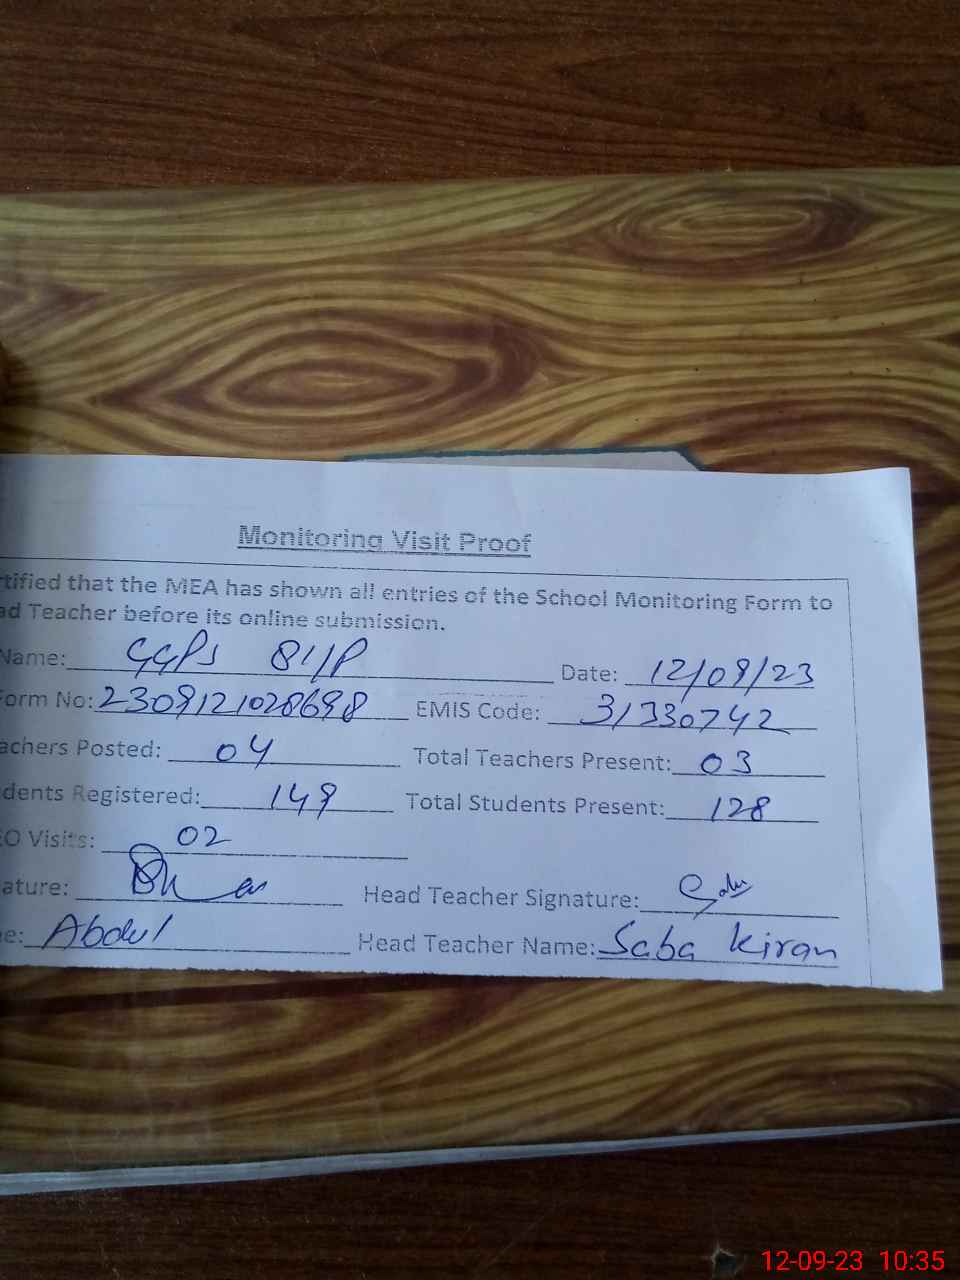 Monitoring Visit Proof
rtified that the MEA has shown all entries of the School Monitoring Form to
ad Teacher before its online submission.
Name: GGPS 81/P Date: 12/09/23
orm No: 2309121028698 EMIS Code: 31330742
achers Posted: 04 Total Teachers Present: 03
dents Registered: 149 Total Students Present: 128
EO Visits: 02
ature: Head Teacher Signature:
e: Abdul Head Teacher Name: Saba Kiran
12-09-23 10:35